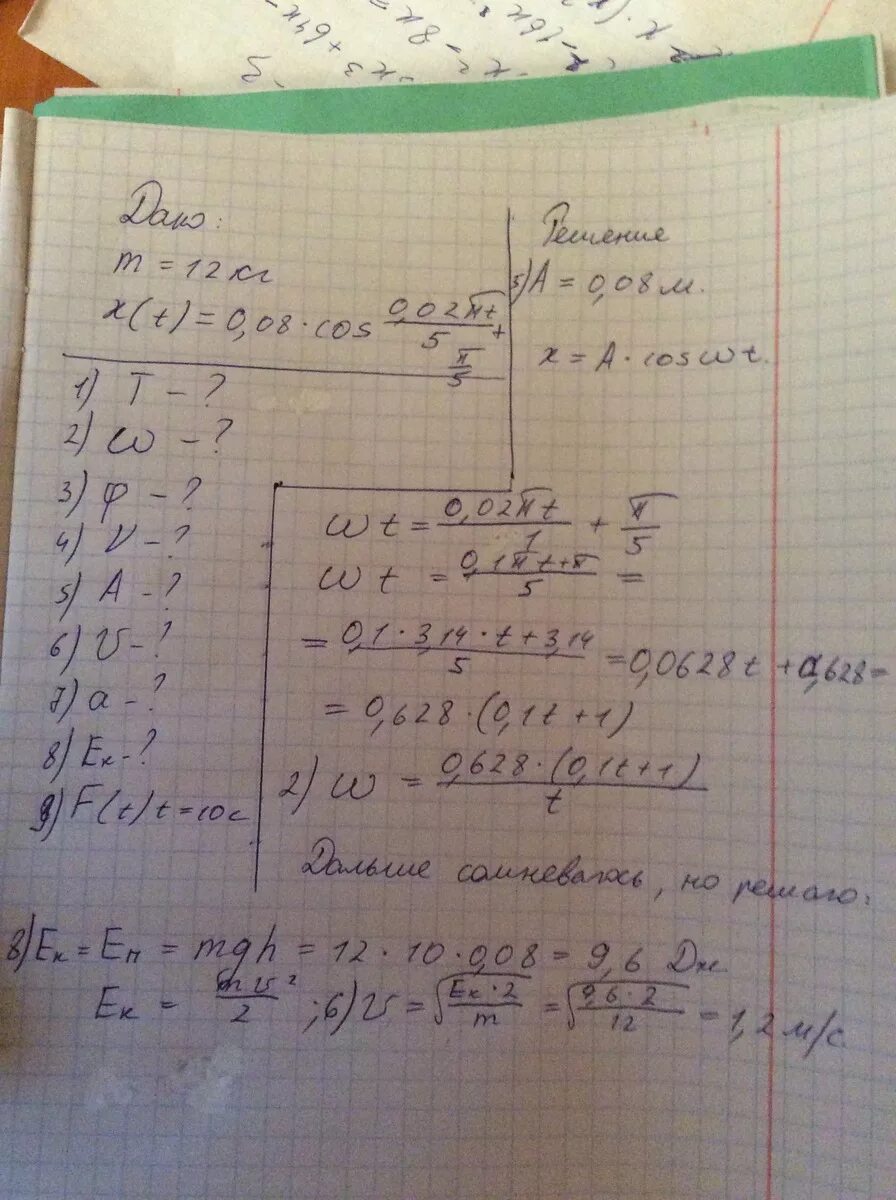 Дано:
m = 12 кг
x(t) = 0,08 · cos 0,02πt/5 + π/5
1) T - ?
2) ω - ?
3) φ - ?
4) ν - ?
5) A - ?
6) υ - ?
7) a - ?
8) Eк - ?
9) F(t) t = 10 с
Решение
5) A = 0,08 м.
x = A · cos ωt.
ωt = 0,02πt/1 + π/5
ωt = 0,1πt + π/5 =
= 0,1 · 3,14 · t + 3,14/5 = 0,0628t + 0,628 =
= 0,628 · (0,1t + 1)
2) ω = 0,628 · (0,1t + 1)/t
Дальше сомневаюсь, но решаю:
8) Eк = Eп = mgh = 12 · 10 · 0,08 = 9,6 Дж
Eк = mυ²/2 ; 6) υ = √Eк · 2/m = √9,6 · 2/12 = 1,2 м/с